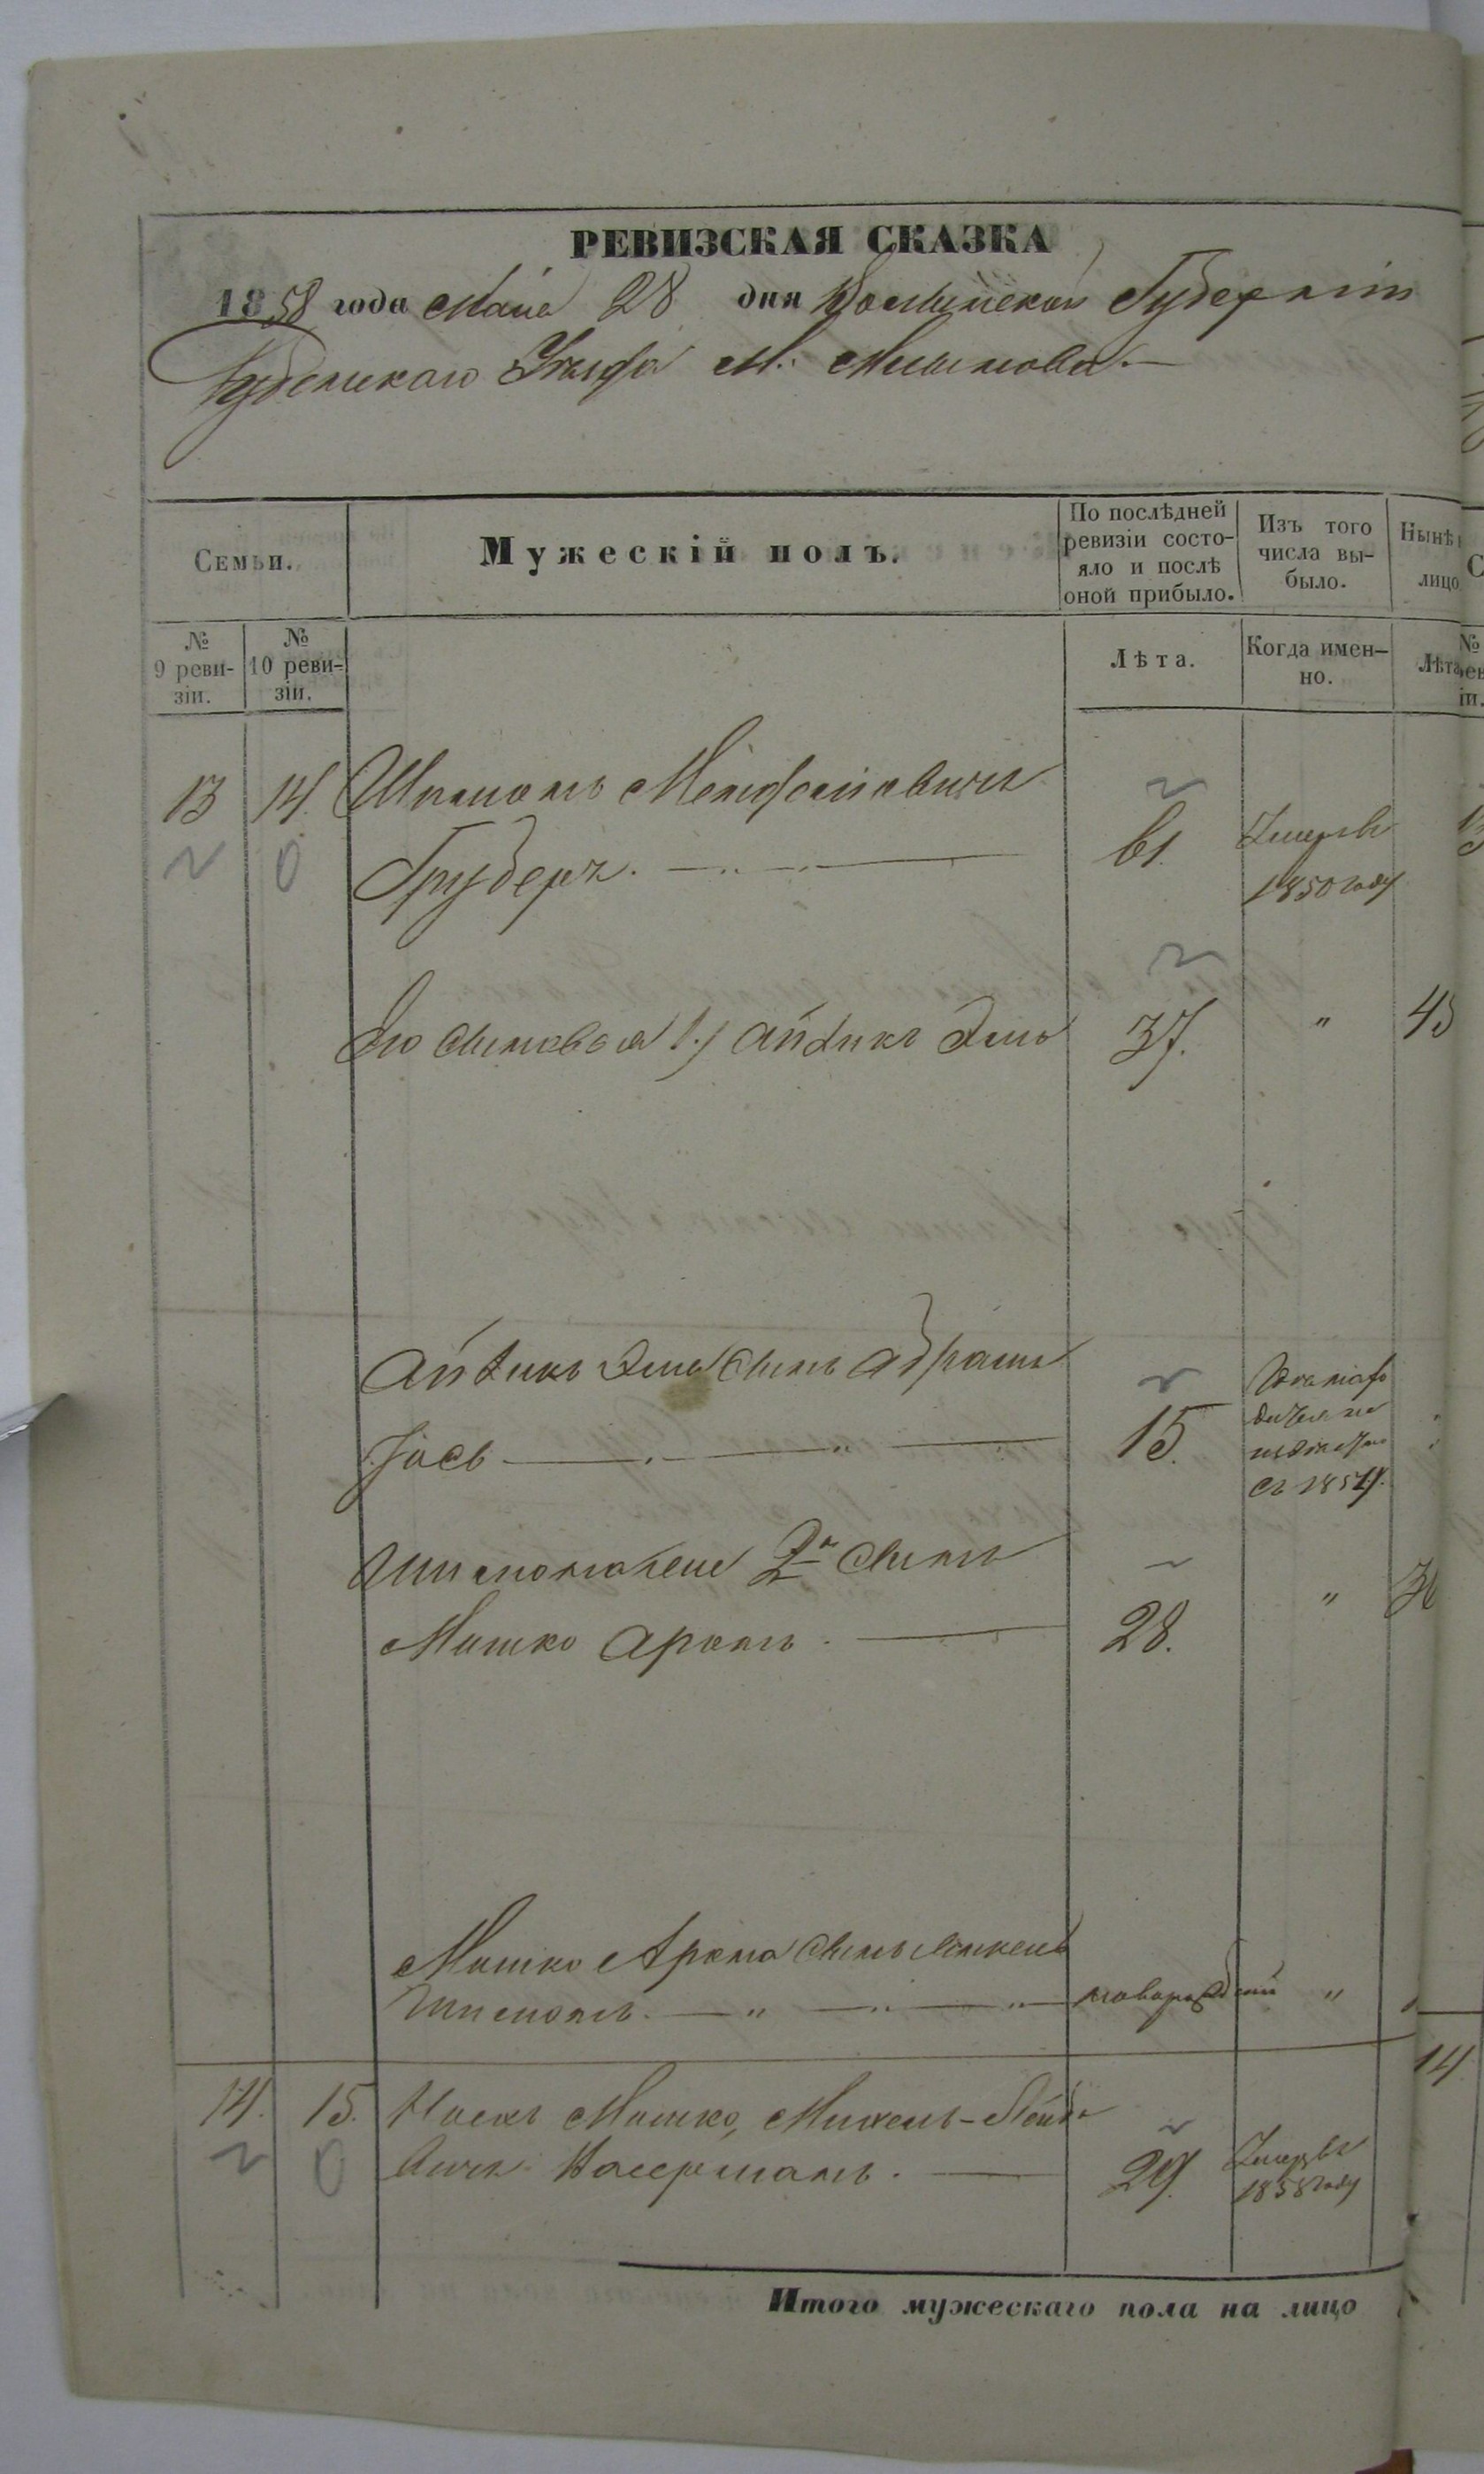 РЕВИЗСКАЯ СКАЗКА
1858 года Маiя 28 дня Волынской Губернiи
Дубенскаго Уѣзда М. Млынова.—
Семьи.
Мужескiй полъ.
По послѣдней ревизiи состо-
яло и послѣ
оной прибыло.
Изъ того
числа вы-
было.
Нынѣ
лицо
№
9 реви-
зiи.
№
10 реви-
зiи.
Лѣта.
Когда имен-
но.
Лѣта
13 14. Шимонъ
Груберъ. 61. Умерлъ
1850 году
Его сыновья 1.) Айзикъ Эль 37. " 45
Айзика Эля сынъ Абрамъ
Iось 15.
съ 1857
Шимона 2й сынъ
Мошко Аронъ. 28. " 36
Мошко Арона сынъ
Шимонъ. — " — " — " — новорожденный "
14. 15. Мошко,
Васерманъ. 29. Умерлъ
1858 году
Итого мужескаго пола на лицо
14